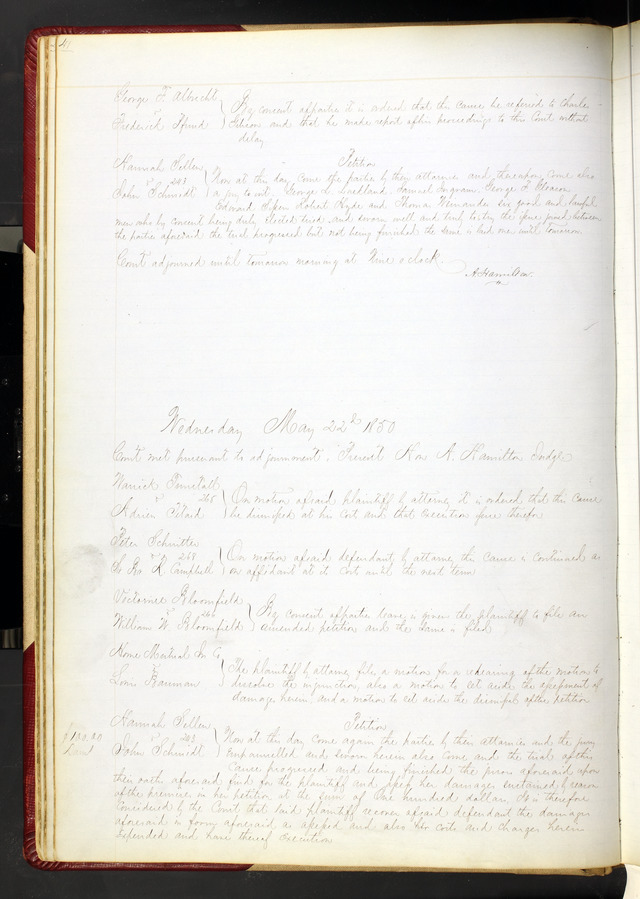 George F Albrecht
vs
Frederick
By consent of parties it is ordered that this cause be referred to Charles
Gibson and that he make report of his proceedings to this Court without
delay
Hannah Sellen
vs 203
John Schmidt
Petition
Now at this day come the parties by their attornies and thereupon come also
a jury to wit, George L Goodland Samuel Ingram George F Gleason
Edward Robert Hyde and Thomas six good and lawful
men who by consent being duly elected tried and sworn well and truly to try the issue joined between
the parties aforesaid the trial progressed but not being finished the same is laid over until tomorrow
Court adjourned until tomorrow morning at Nine o'clock
A Hamilton
Wednesday May 22nd 1850
Court met pursuant to adjournment, Present Hon A. Hamilton Judge
Warrick Tunstall
vs 265
Adrien
On motion of said plaintiff by attorney it is ordered that this cause
be dismissed at his cost and that execution issue therefor
Peter Schuetter
vs 268
K Campbell
On motion of said defendant by attorney this cause is continued as
on affidavit at its cost until the next term
Bloomfield
vs 261
William W. Bloomfield
By consent of parties leave is given the plaintiff to file an
amended petition and the same is filed
Home Mutual In Co
vs
Louis Bauman
The plaintiff by attorney files a motion for a rehearing of the motion to
dissolve the injunction, also a motion to set aside the assessment of
damages herein, and a motion to set aside the dismissal of the petition
$100.00
Hannah Sellen
vs 203
John Schmidt
Petition
Now at this day come again the parties by their attornies and the jury
empannelled and sworn herein also come and the trial of this
cause progressed and being finished the jurors aforesaid upon
their oath aforesaid find for the plaintiff and assess her damages sustained by reason
of the premises in her petition at the sum of One hundred dollars. It is therefore
Considered by the Court that said plaintiff recover of said defendant the damages
aforesaid in form aforesaid as assessed and also her costs and charges herein
expended and have thereof execution